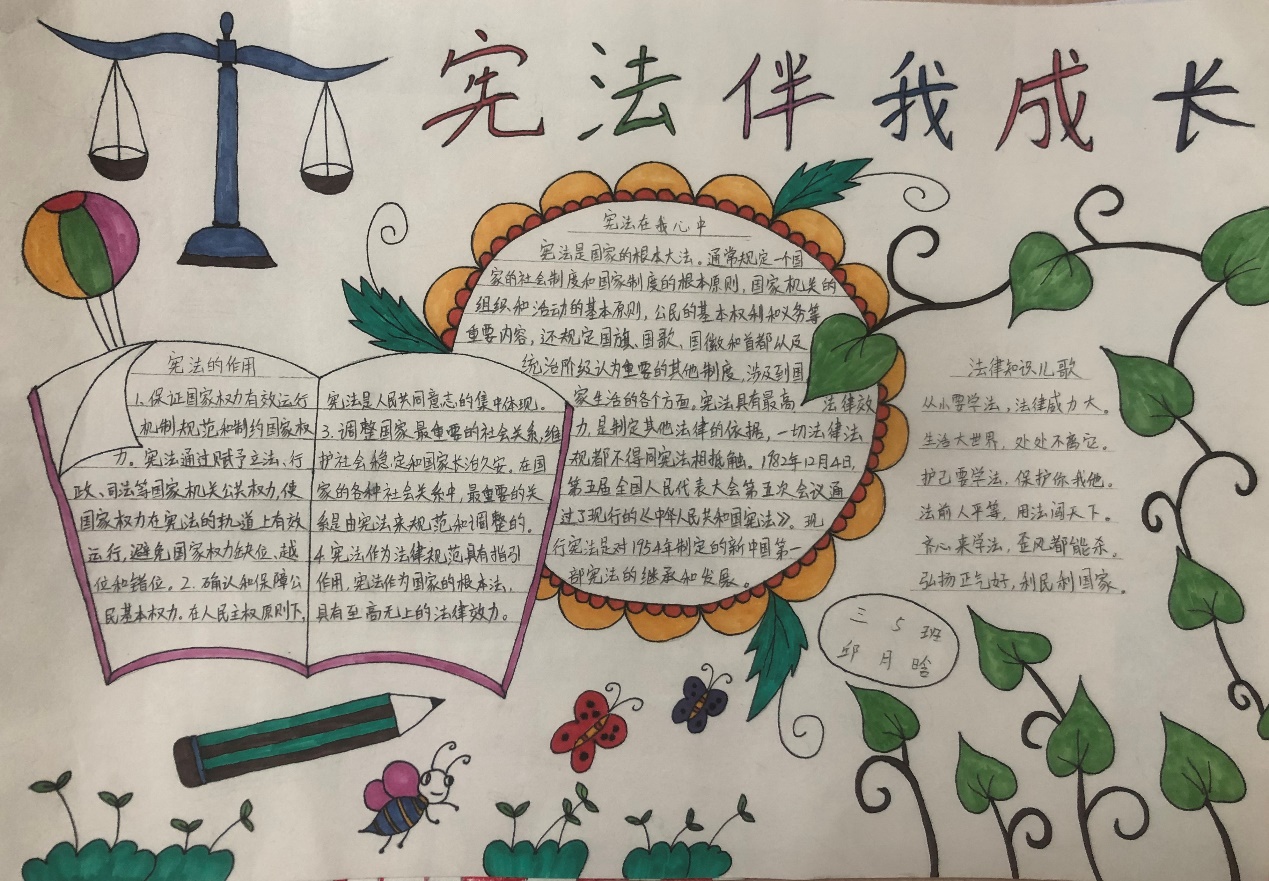 宪法伴我成长
宪法的作用
1.保证国家权力有效运行
机制规范和制约国家权
力。宪法通过赋予立法、行
政、司法等国家机关公共权力,使
国家权力在宪法的轨道上有效
运行,避免国家权力缺位、越
位和错位。2.确认和保障公
民基本权力。在人民主权原则下,
宪法是人民共同意志的集中体现。
3.调整国家最重要的社会关系,维
护社会稳定和国家长治久安。在国
家的各种社会关系中,最重要的关
系是由宪法来规范和调整的。
4.宪法作为法律规范具有指引
作用,宪法作为国家的根本法,
具有至高无上的法律效力。
宪法在我心中
宪法是国家的根本大法。通常规定一个国
家的社会制度和国家制度的根本原则,国家机关的
组织和活动的基本原则,公民的基本权利和义务等
重要内容,还规定国旗、国歌、国徽和首都以及
统治阶级认为重要的其他制度,涉及到国
家生活的各个方面。宪法具有最高 法律效
力,是制定其他法律的依据,一切法律法
规都不得同宪法相抵触。1982年12月4日,
第五届全国人民代表大会第五次会议通
过了现行的《中华人民共和国宪法》。现
行宪法是对1954年制定的新中国第一
部宪法的继承和发展。
法律知识儿歌
从小要学法,法律威力大。
生活大世界,处处不离它。
护己要学法,保护你我他。
法前人平等,用法闯天下。
齐心来学法,歪风都能杀。
弘扬正气好,利民利国家。
三 5 班
邱月晗